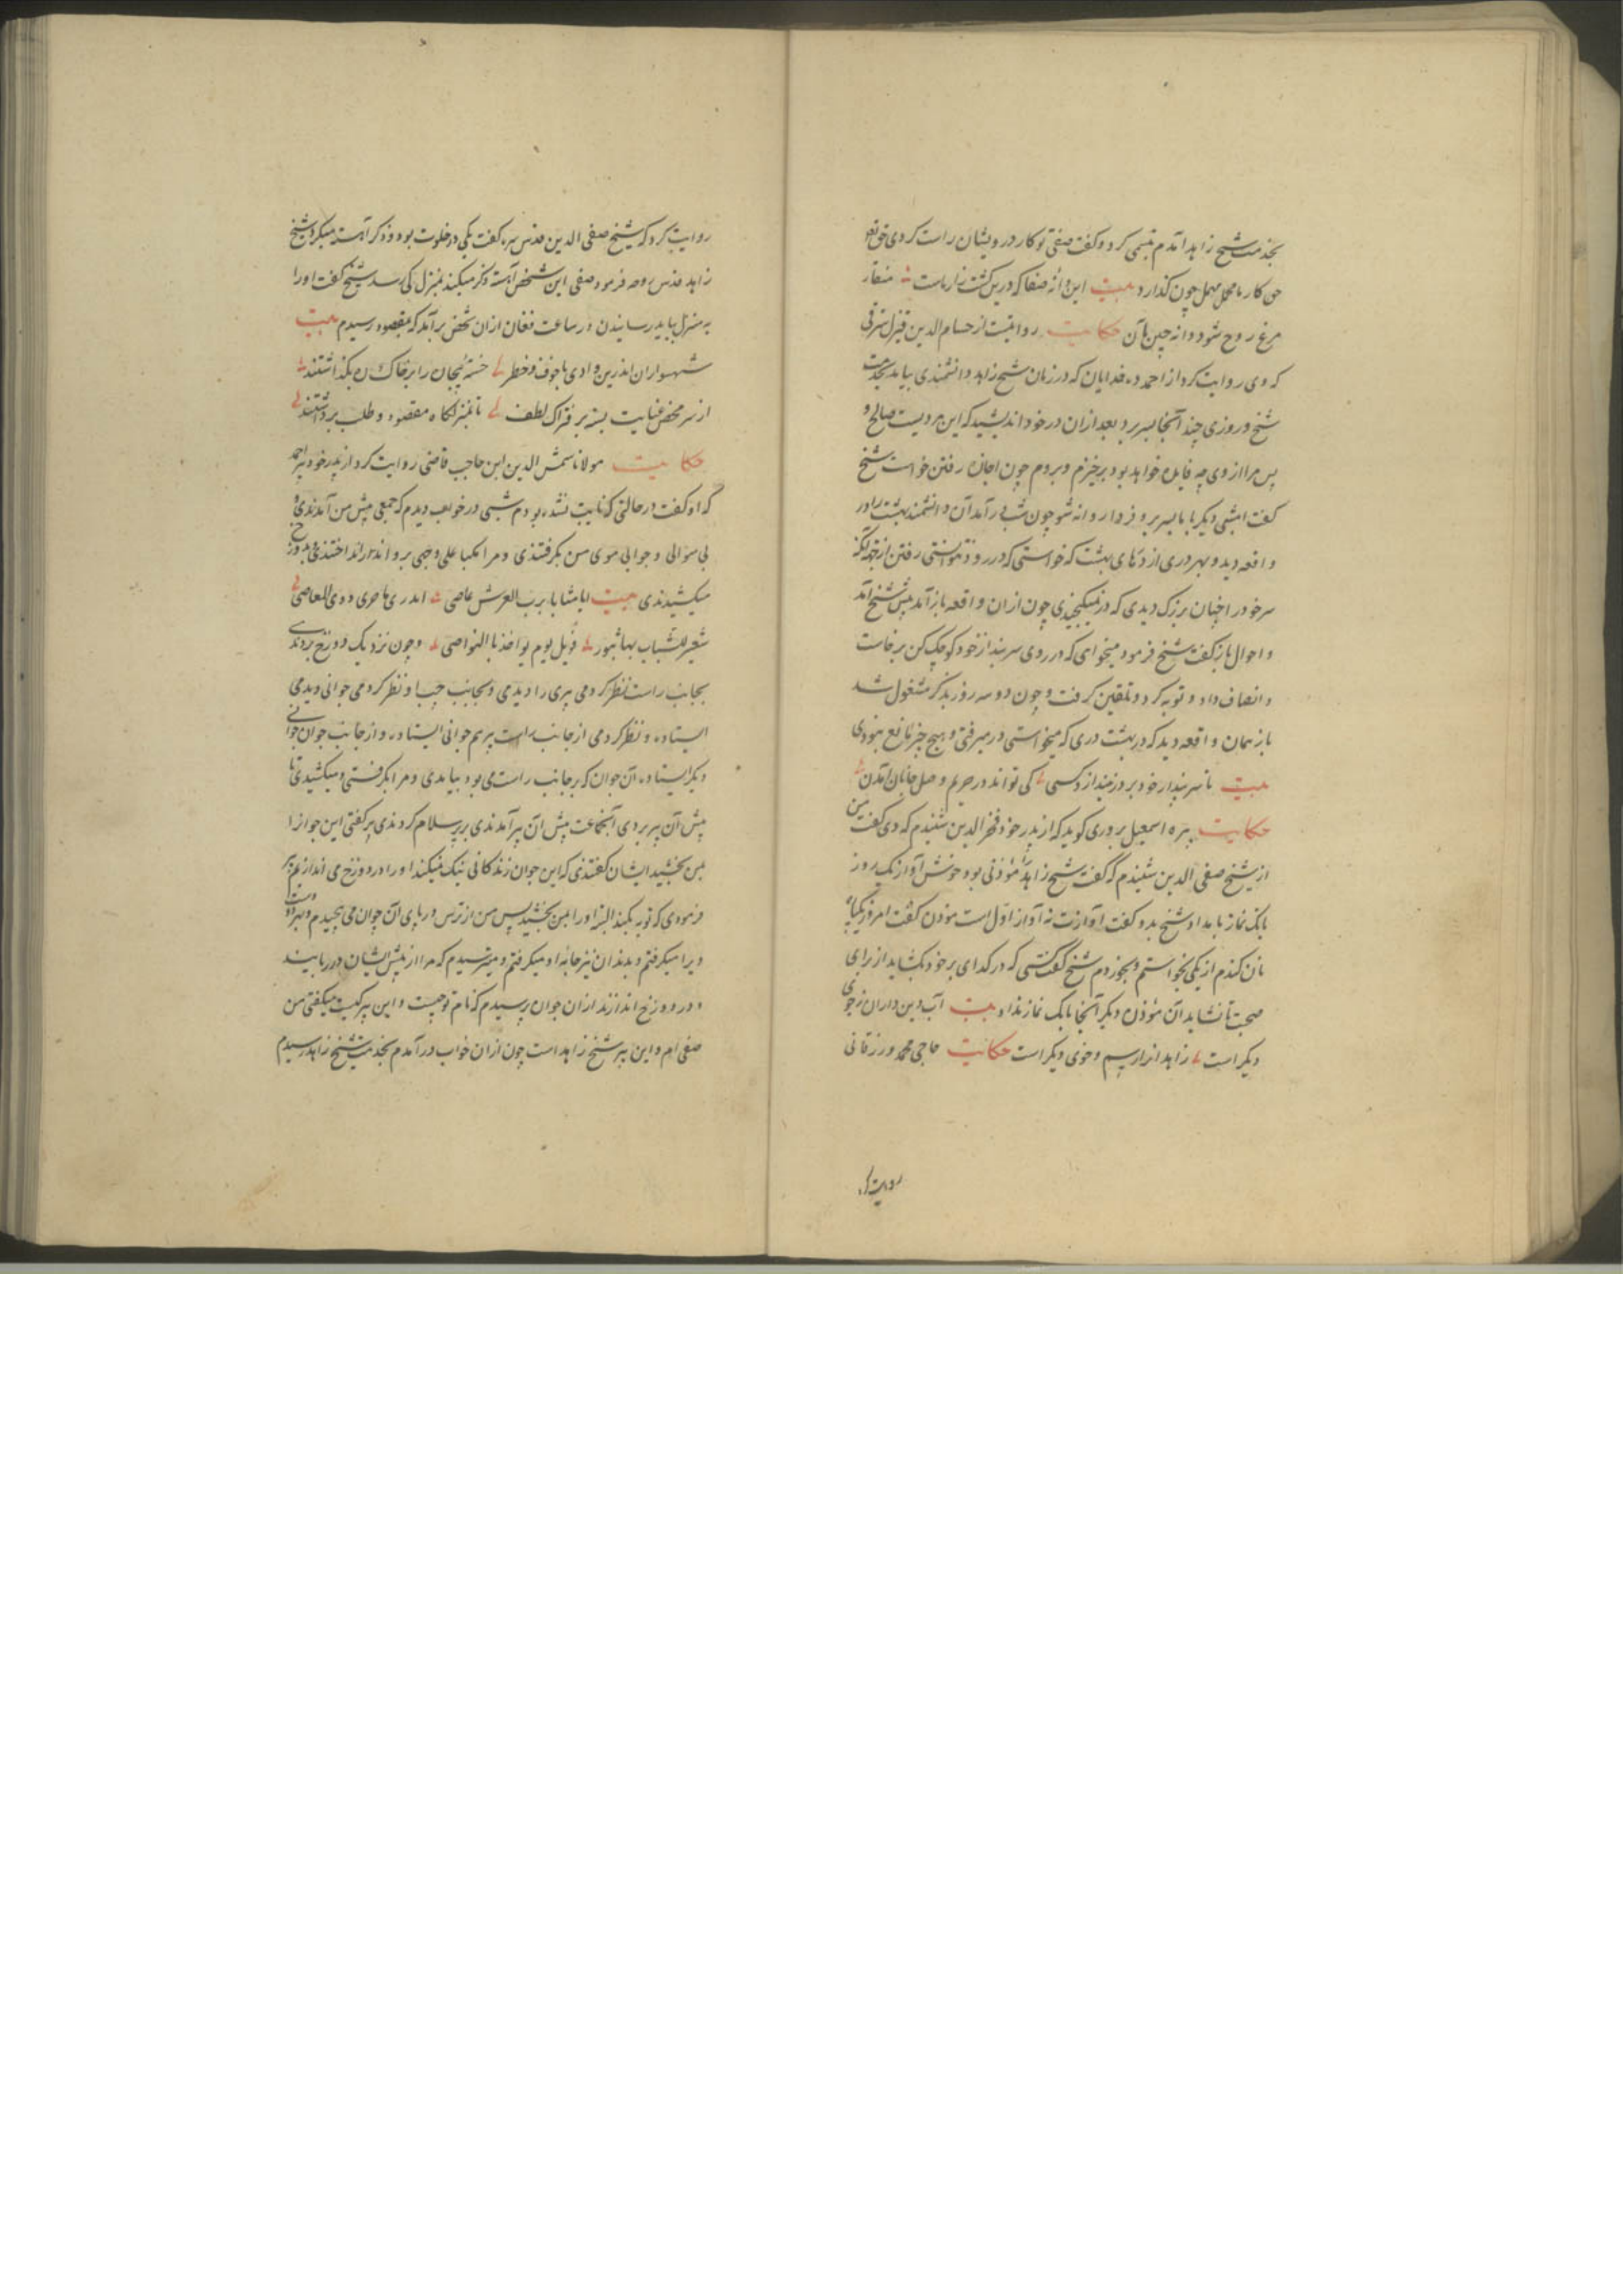 بخدمت شیخ زاهد آمدم تبسمی کرد و گفت صفی تو کار درویشان راست کردی حق تعو
حق کار ما مهمل چون گذارد بیت این دانه صفا که درین کشت زار ماست منقار
مرغ روح شود دانه چین ما آن حکایت روایتست از حسام الدین قزل
که وی روایت کرد از احمد ده خدایان که در زمان شیخ زاهد دانشمندی بیامد بخدمت
شیخ و روزی چند آنجا بسر برد بعد از آن در خود اندیشید که این مردیست صالح و
پس مرا از وی چه فایده خواهد بود برخیزم و بروم چون اجازه رفتن خواست شیخ
گفت امشبی دیگر با ما بسر بر و فردا روانه شو چون شب در آمد آن دانشمند بهشت را در
واقعه دید و بهر دری از درهای بهشت که خواستی که در رود نتوانستی رفتن از
سر خود را چنان بزرگ دیدی که در نمیگنجیدی چون از آن واقعه باز آمد پیش شیخ آمد
و احوال باز گفت شیخ فرمود میخواهی که در روی سر پندار خود کوچک کن برخاست
و انصاف داد و توبه کرد و تلقین گرفت و چون دو سه روز بذکر مشغول شد
باز همان واقعه دید که در بهشت دری که میخواستی در میرفتی و هیچ چیز مانع نبودی
بیت تا سر پندار خود بر در نیندازد کسی کی تواند در حریم وصل جانان آمدن
حکایت پیره اسمعیل بروری گوید که از پدر خود فخر الدین شنیدم که وی گفت من
از شیخ صفی الدین شنیدم که گفت شیخ زاهد را مؤذنی بود خوش آواز یک روز
بانک نماز بامداد شیخ بدو گفت آوازت نه آواز اول است مؤذن گفت امروز یکباره
نان گندم از یکی بخواستم و بخوردم شیخ گفت کسی که در گدای بر خود بگشاید از برای
صحبت ما نشاید آن مؤذن دیگر آنجا بانک نماز نداد بیت آب دین داران ز جوی
دیگر است زاهدانرا رسم و خوی دیگر است حکایت حاجی محمد ورزقانی
روایت کرد
روایت کرد که شیخ صفی الدین قدس سره گفت یکی در خلوت بود و ذکر آهسته میکرد شیخ
زاهد قدس روحه فرمود صفی این شخص آهسته ذکر میکند بمنزل کی رسد شیخ گفت او را
به منزل بباید رسانیدن در ساعت فغان از آن شخص برآمد که بمقصود رسیدم بیت
شهسواران اندرین وادی با خوف و خطر خسته بیجان را بر خاک ره بگذاشتند
از سر محض عنایت بسته بر فتراک لطف تا بمنزلگاه مقصود و طلب برداشتند
حکایت مولانا شمس الدین ابن حاجب قاضی روایت کرد از پدر خود پیر احمد
که او گفت در حالتی که تایب نشده بودم شبی در خواب دیدم که جمعی پیش من آمدندی و
بی سؤالی و جوابی موی من بگرفتندی و مرا مکبا علی وجهی بر رو انداختندی و بدوزخ
میکشیدندی بیت ایا شابا برب العرش عاصی اتدری ما جزی ذوی المعاصی
سعیر للشباب بها ثبور فویل یوم یؤاخذ بالنواصی و چون نزدیک دوزخ بردندی
بجانب راست نظر کردمی پیری را دیدمی و بجانب چپ او نظر کردمی جوانی دیدمی
ایستاده و نظر کردمی از جانب راست پیر هم جوانی ایستاده و از جانب جوان جوانی
دیگر ایستاده آن جوان که بر جانب راست می بود بیامدی و مرا بگرفتی و میکشیدی تا
پیش آن پیر بردی آنجماعت پیش آن پیر آمدندی بر پیر سلام کردندی پیر گفتی این جوانرا
بمن بخشید ایشان گفتندی که این جوان زندگانی نیک نمیکند او را در دوزخ می اندازیم پیر
فرمودی که توبه بکند البته او را بمن بخشید پس من از ترس در پای آن جوان می پیچیدم و بهر دو دست
ویرا میگرفتم و بدندان نیز جامه او میگرفتم و میترسیدم که مرا از پیش ایشان در ربایند
و در دوزخ اندازند از آن جوان پرسیدم که نام تو چیست و این پیر کیست میگفتی من
صفی ام و این پیر شیخ زاهد است چون از آن خواب در آمدم بخدمت شیخ زاهد رسیدم